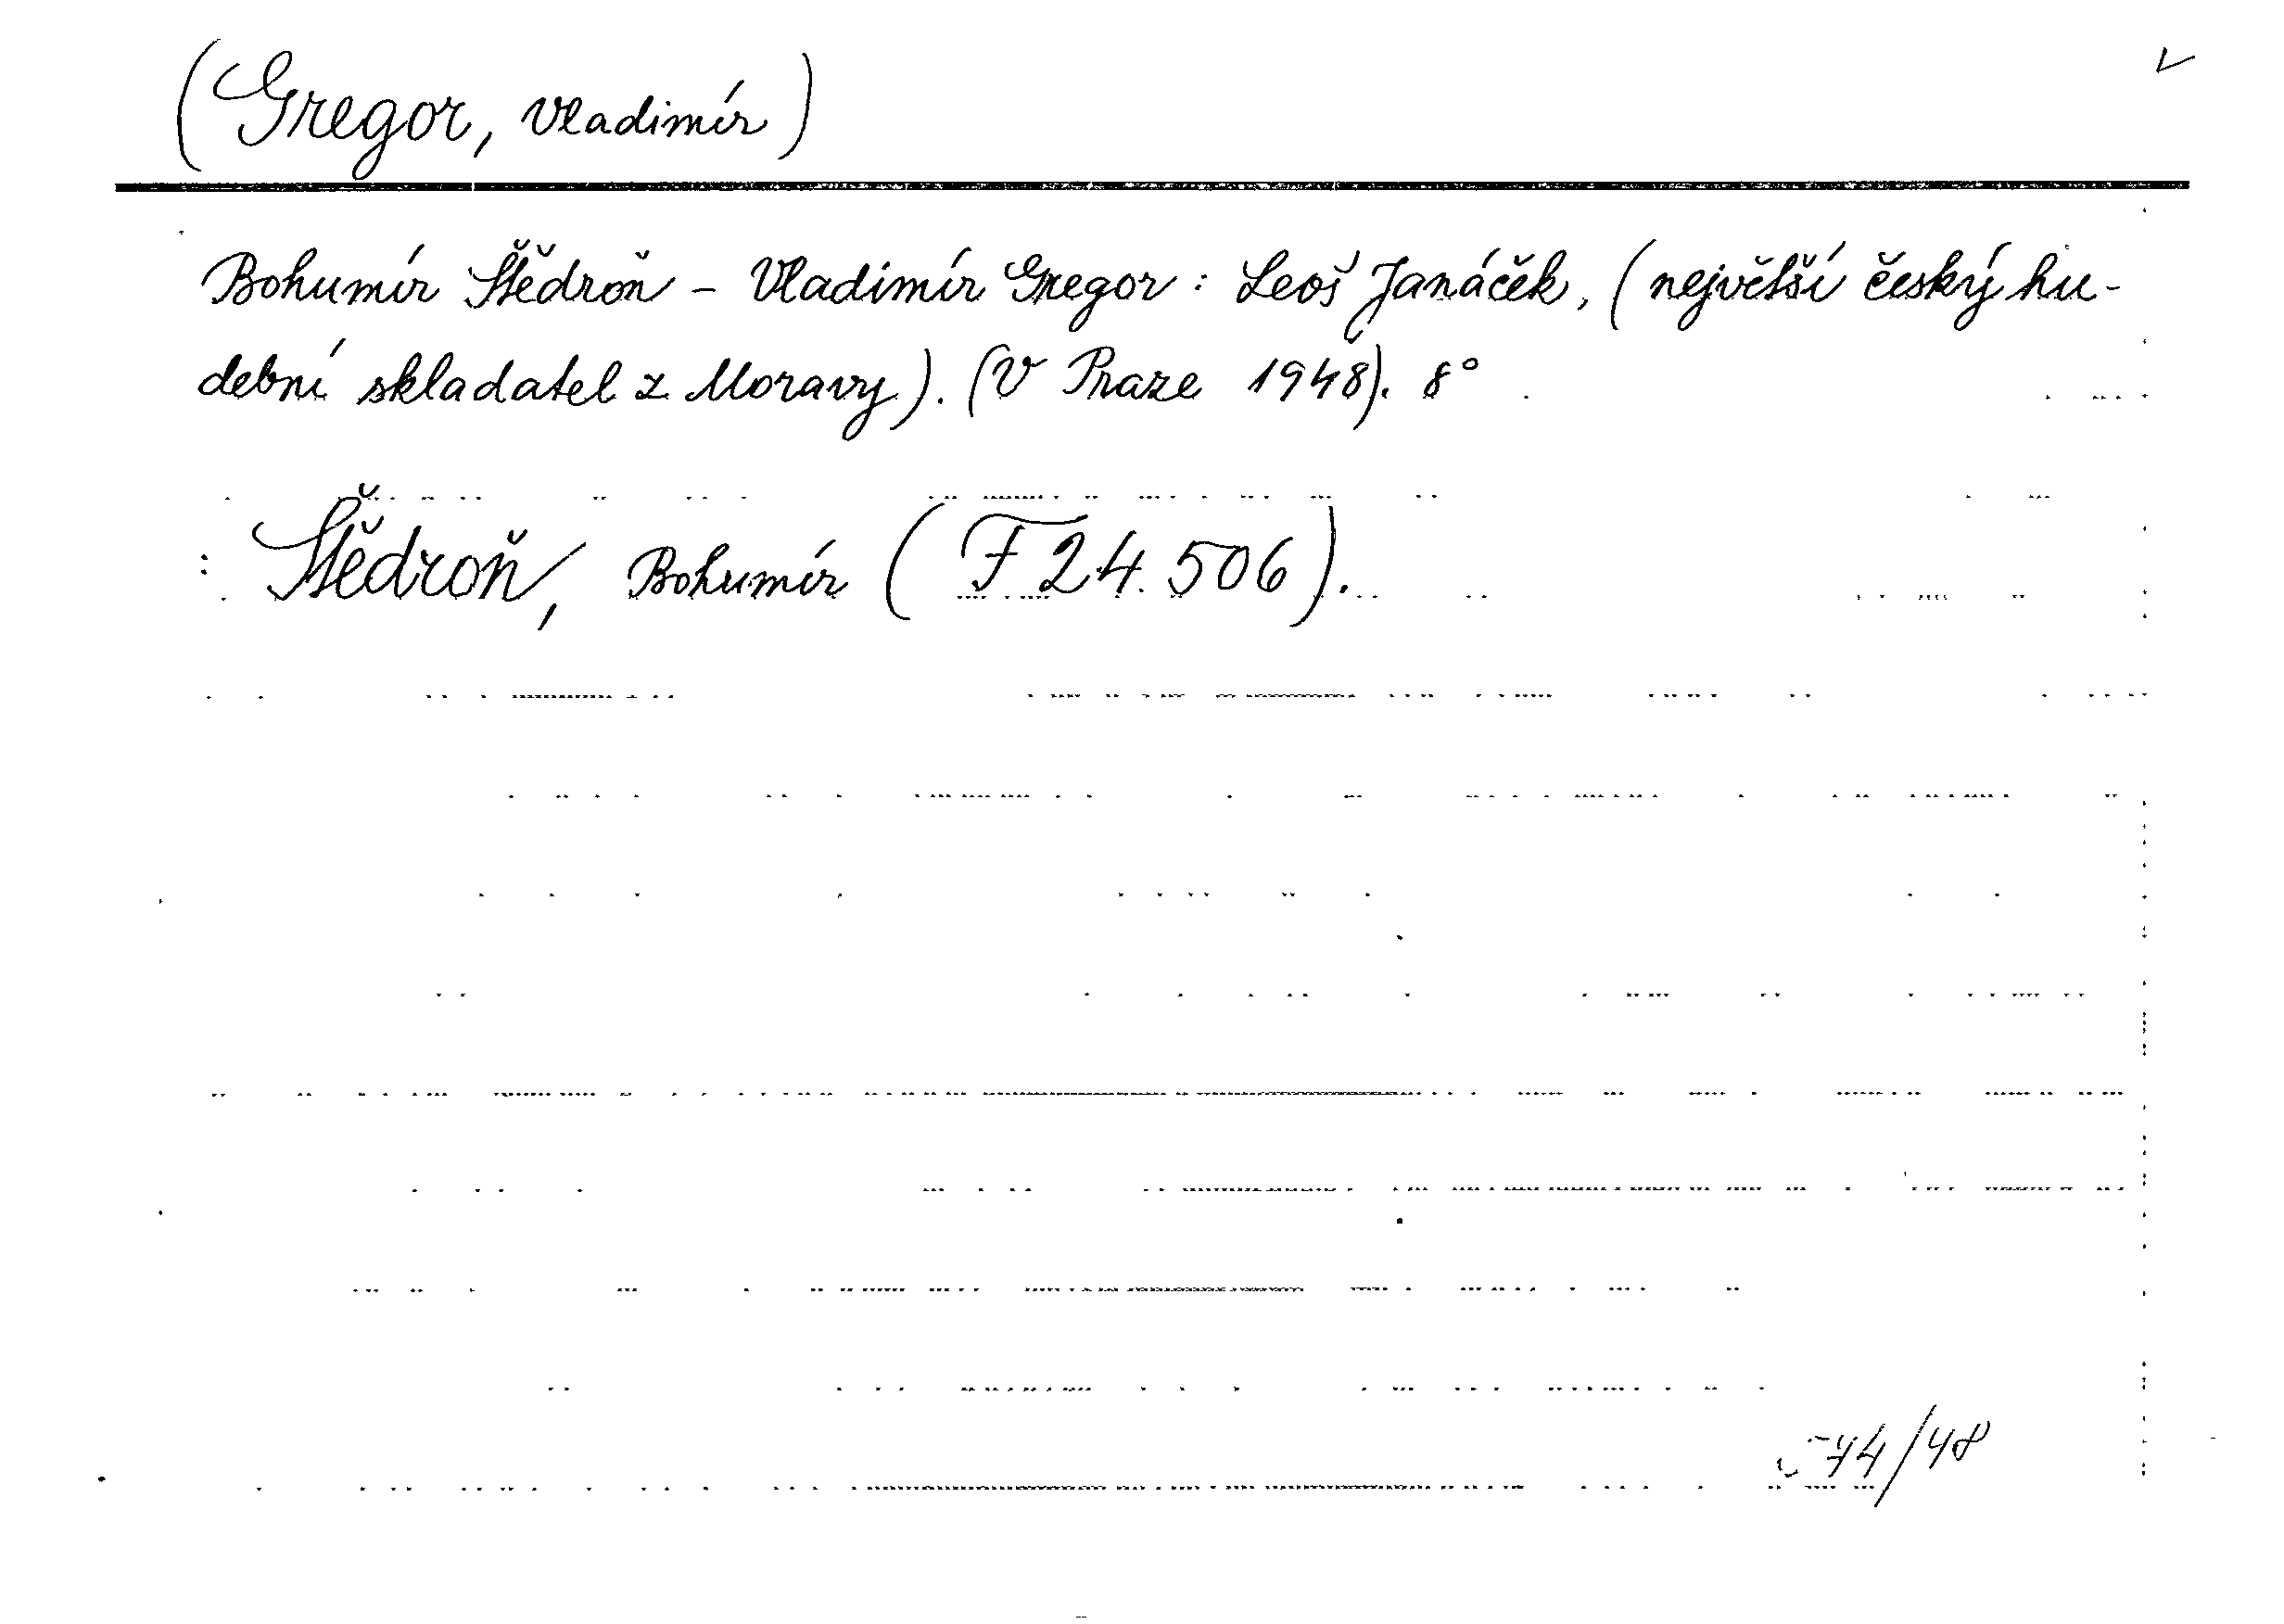 (Gregor, Vladimír)
Bohumír Štědroň - Vladimír Gregor: Leoš Janáček, (největší český hu-
dební skladatel z Moravy). (V Praze 1948). 8°
: Štědroň, Bohumír (F 24.506).
74/48